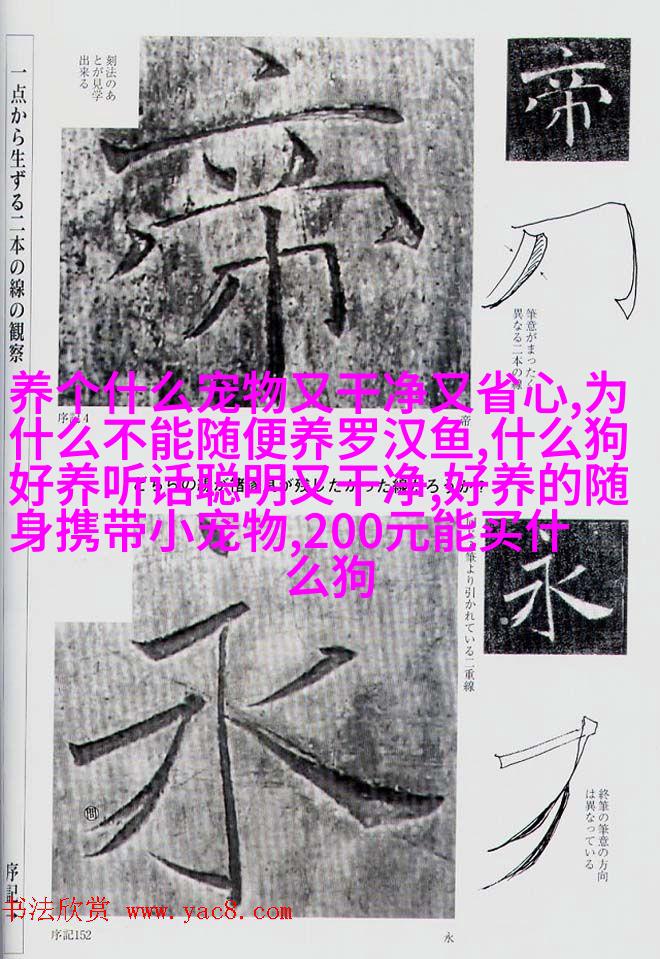 一点から生ずる二本の線の観察
刻法のあ
とが見学
出来る
帝
帝
序記4
帝
筆意がまったく
異なる二本の線
养个什么宠物又干净又省心,为
什么不能随便养罗汉鱼,什么狗
好养听话聪明又干净,好养的随
身携带小宠物,200元能买什
么狗
永
永
より引かれている二重線
終筆の筆意の方向
は異なっている
序記
书法欣赏 www.yac8.com
序記152
永